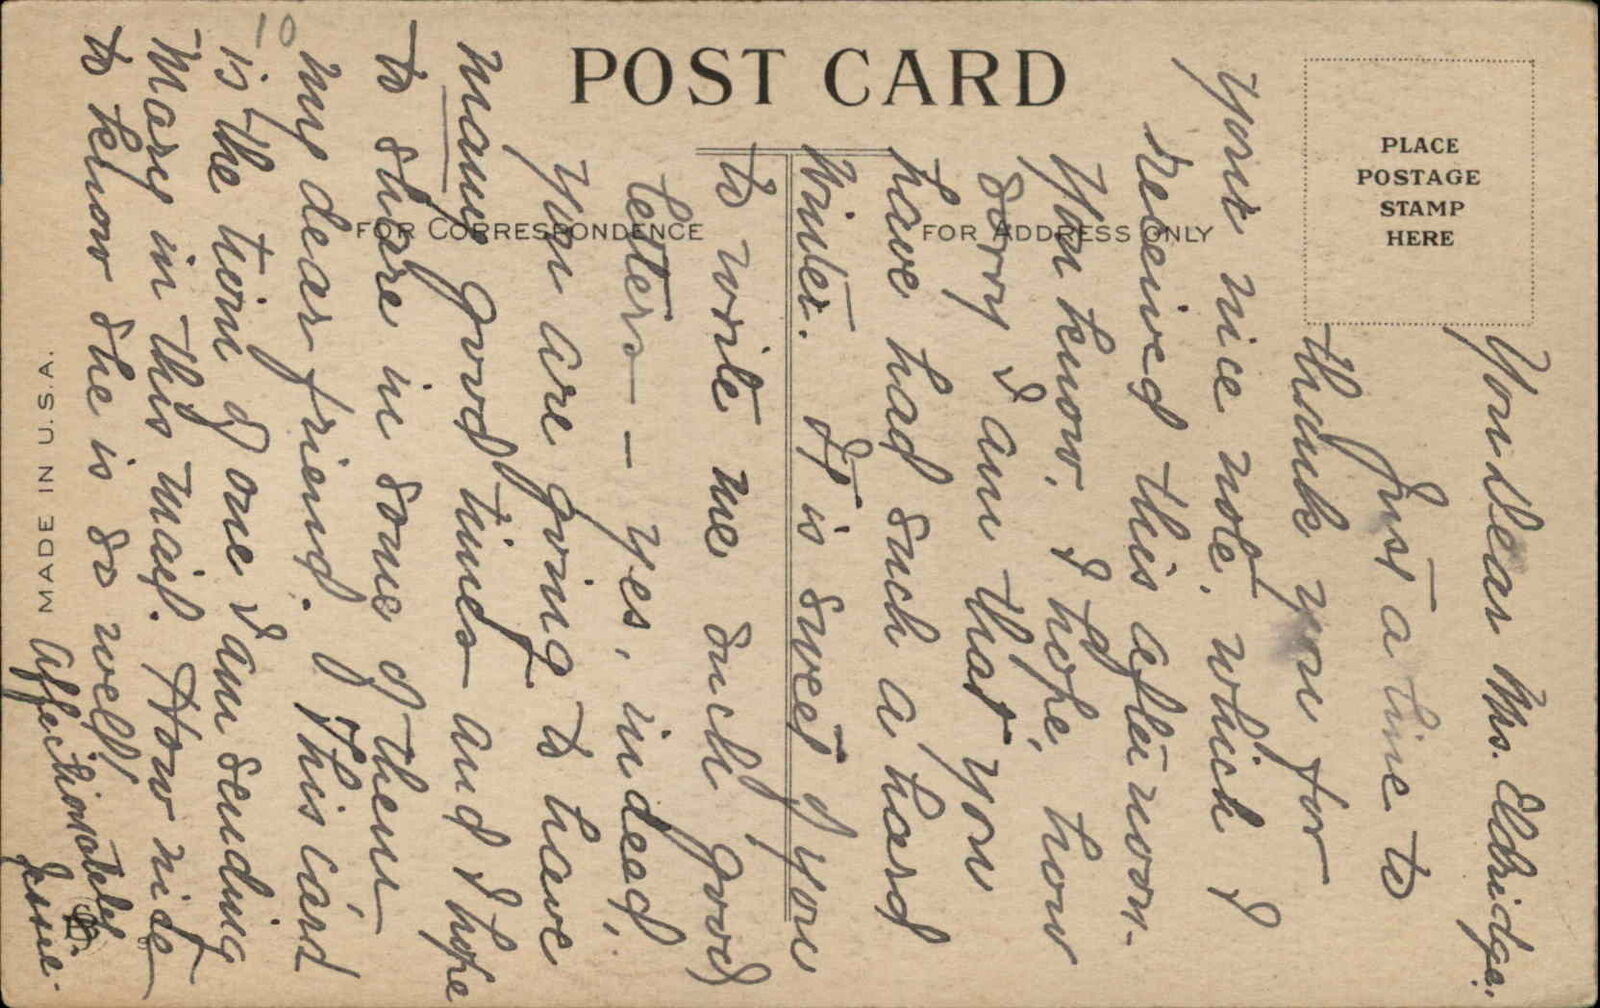 POST CARD
FOR CORRESPONDENCE
FOR ADDRESS ONLY
PLACE
POSTAGE
STAMP
HERE
MADE IN U.S.A.
10
You Dear Mrs. Elbridge:
Just a line to
thank you for
your nice note, which I
received this afternoon.
You know, I hope, how
sorry I am that you
have had such a hard
winter. It is sweet of you
to write me such good
letters — yes, indeed,
you are going to have
many good times and I hope
to share in some of them
my dear friend. This card
is the twin of one I am sending
Mary in this mail. How nice
to know she is so well!
Affectionately
Jessie.